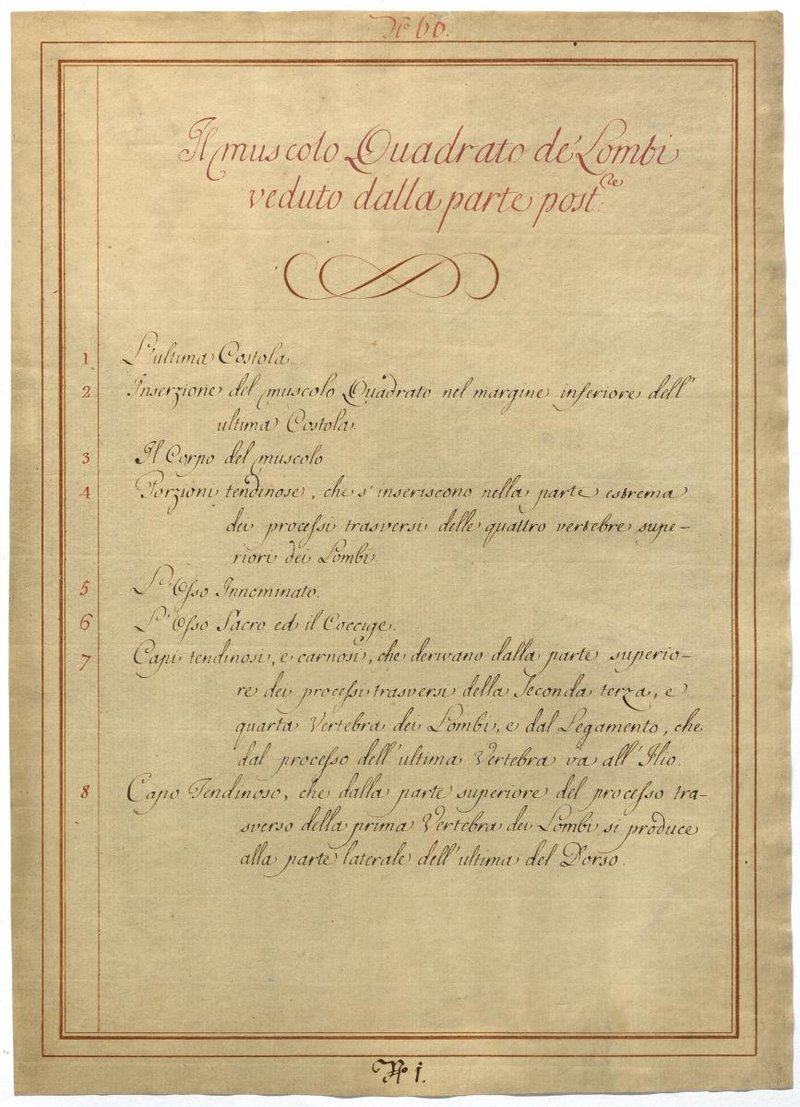 N.º 66.
Il muscolo Quadrato de' Lombi
veduto dalla parte post.re
1 L'ultima Costola
2 Inserzione del muscolo Quadrato nel margine inferiore dell'
ultima Costola.
3 Il Corpo del muscolo
4 Porzioni tendinose, che s'inseriscono nella parte estrema
dei processi trasversi delle quattro vertebre supe-
riori dei Lombi.
5 L'Osso Innominato.
6 L'Osso Sacro ed il Coccige.
7 Capi tendinosi, e carnosi, che derivano dalla parte superio-
re dei processi trasversi della Seconda terza, e
quarta Vertebra dei Lombi, e dal Legamento, che
dal processo dell'ultima Vertebra va all'Ilio.
8 Capo Tendinoso, che dalla parte superiore del processo tra-
sverso della prima Vertebra dei Lombi si produce
alla parte laterale dell'ultima del Dorso.
N.º 1.